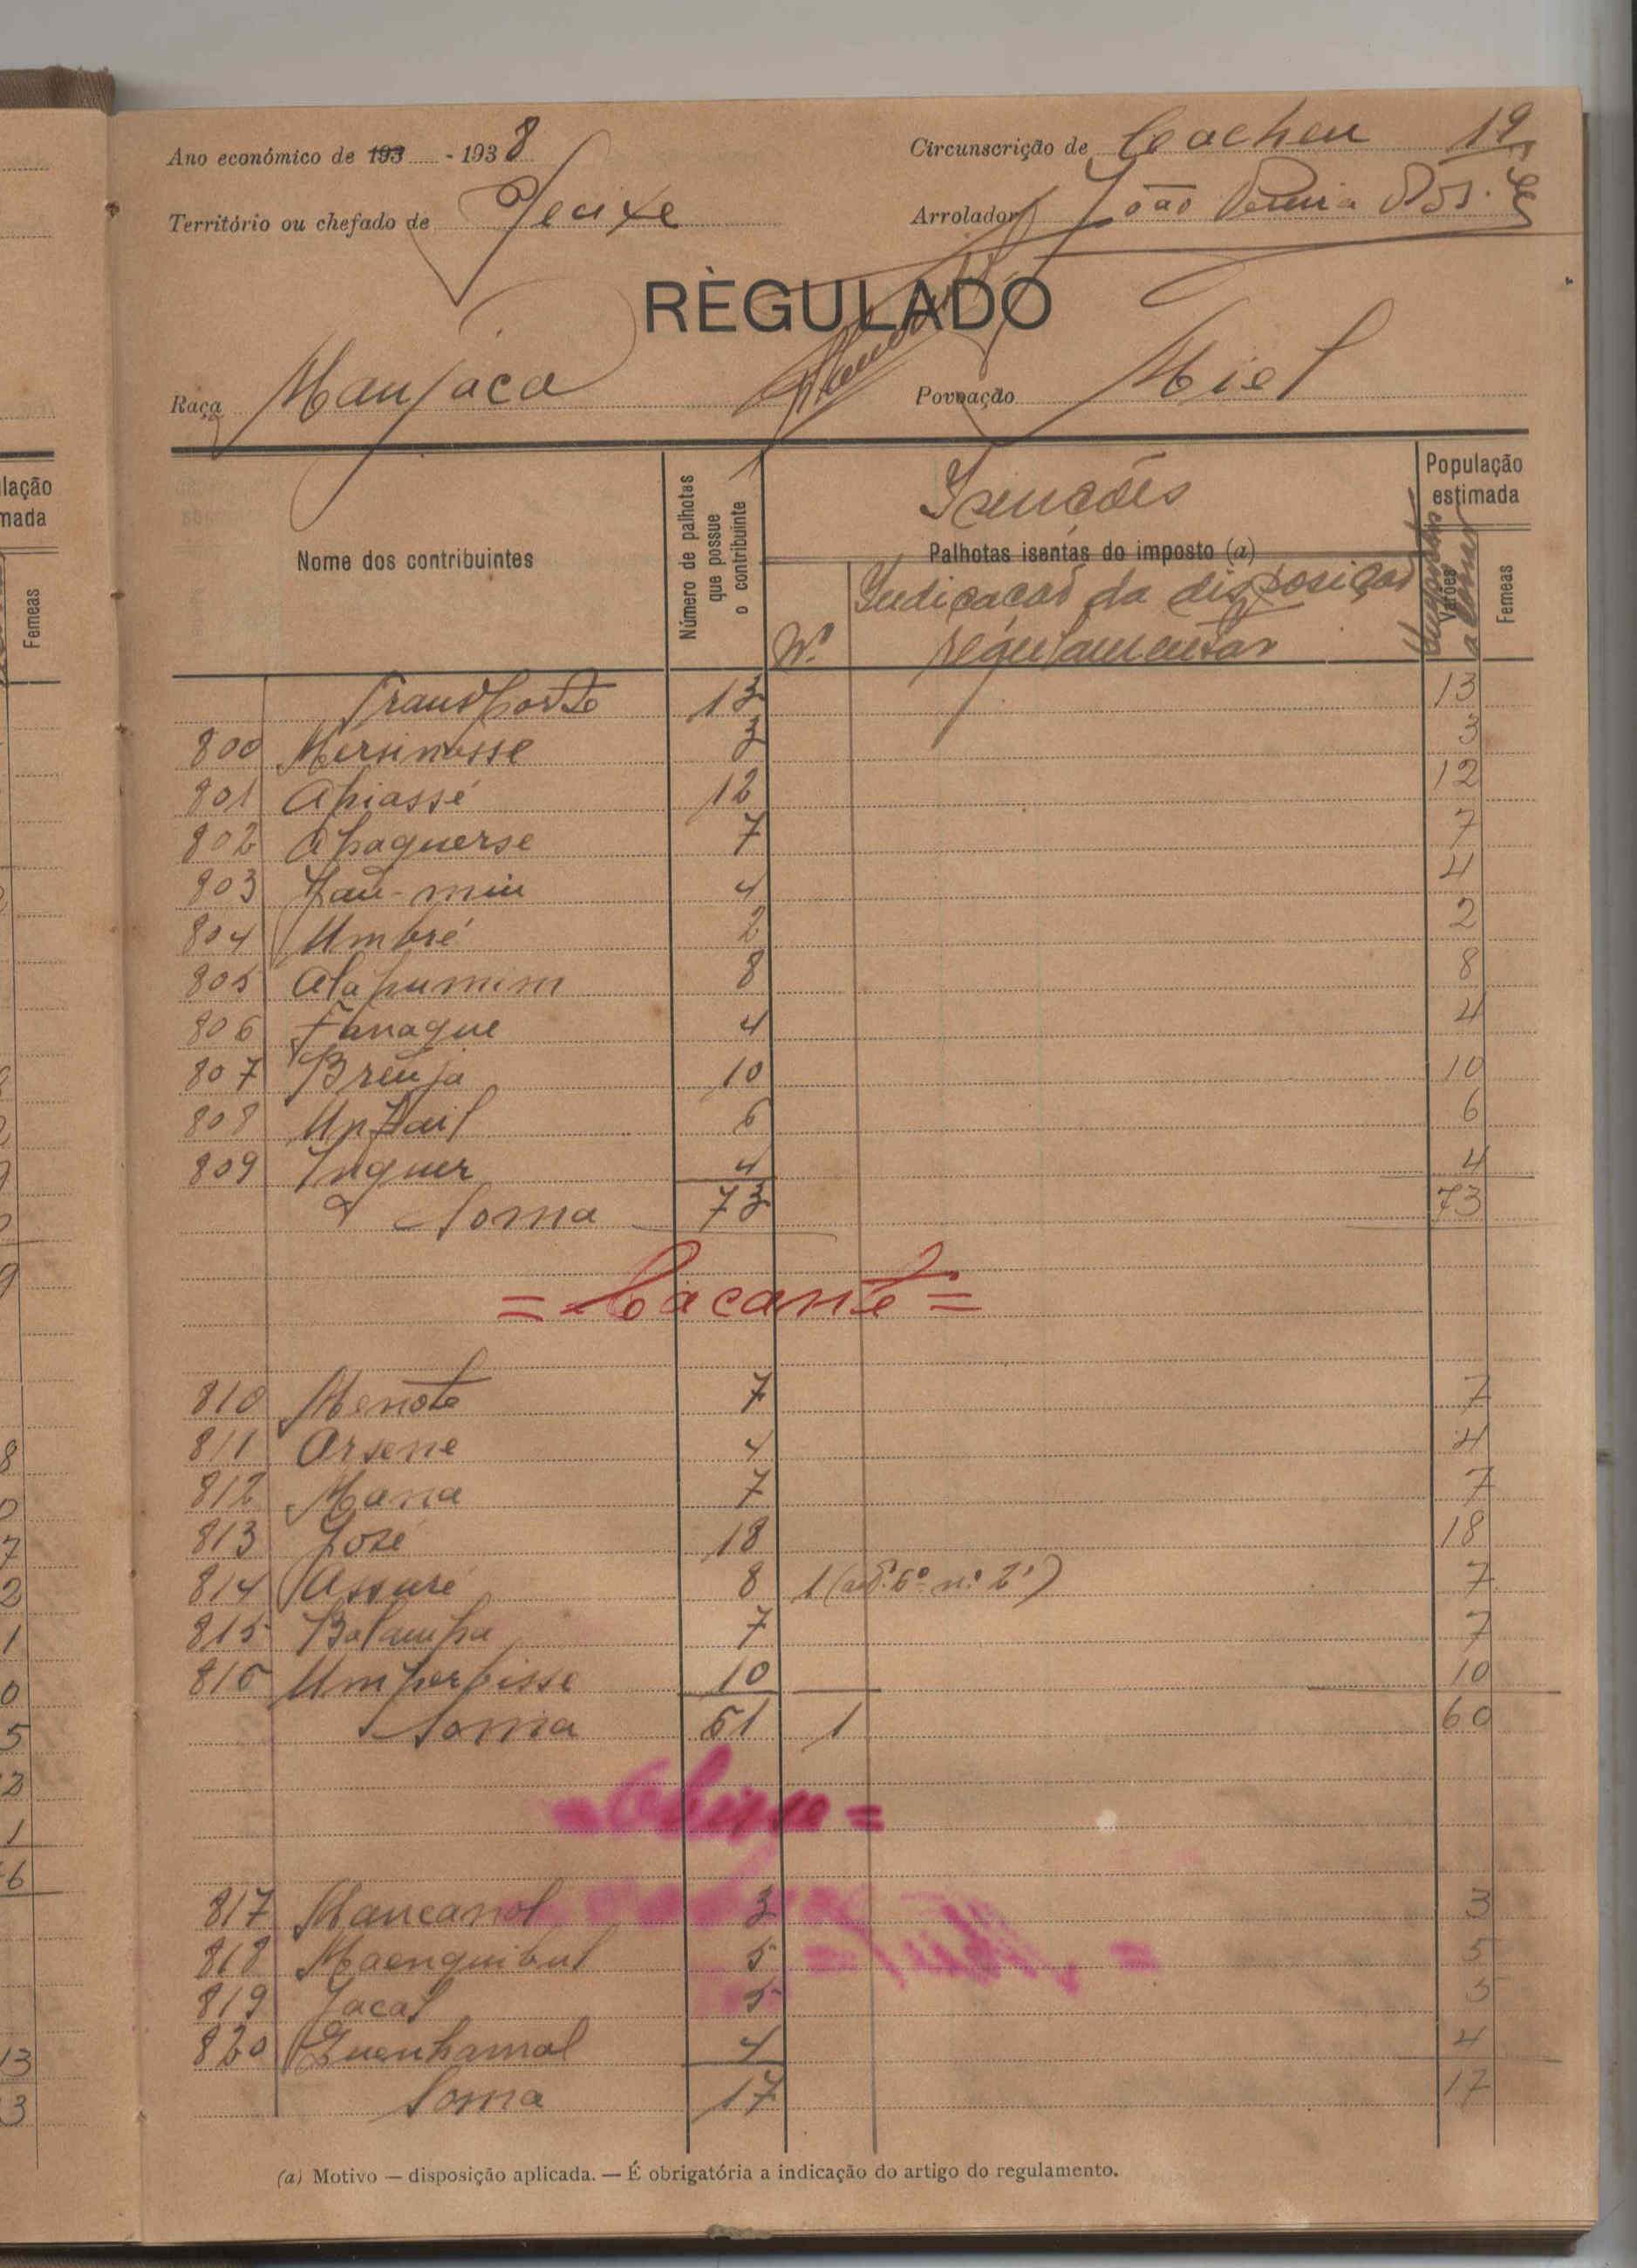 Ano económico de 193 - 1938
Circunscrição de Cacheu 19
Território ou chefado de Jecixe
Arrolador João
RÈGULADO
Raça Manjaca
Povoação Miel
Nome dos contribuintes
Número de palhotas que possue o contribuinte
Isenções
Palhotas isentas do imposto (a)
N.º
Indicação da disposição regulamentar
População estimada
Varões
Femeas
Transporte 13 13
800 Mersinosse 3 3
801 Apiassé 12 12
802 Apaquerse 7 7
803 4 4
804 Umbré 2 2
805 Alapumim 8 8
806 Fanaque 4 4
807 Breuja 10 10
808 6 6
809 Inquer 4 4
Soma 73 73
= Cacante =
810 Menote 7 7
811 Arsene 4 4
812 Mana 7 7
813 José 18 18
814 Assuré 8 1 (art. 6º nº 2º) 7
815 Balampa 7 7
816 10 10
Soma 61 1 60
817 Mancanol 3 3
818 5 5
819 Jacal 5 5
820 Quenhamal 4 4
Soma 17 17
(a) Motivo — disposição aplicada. — É obrigatória a indicação do artigo do regulamento.
lação
mada
Femeas